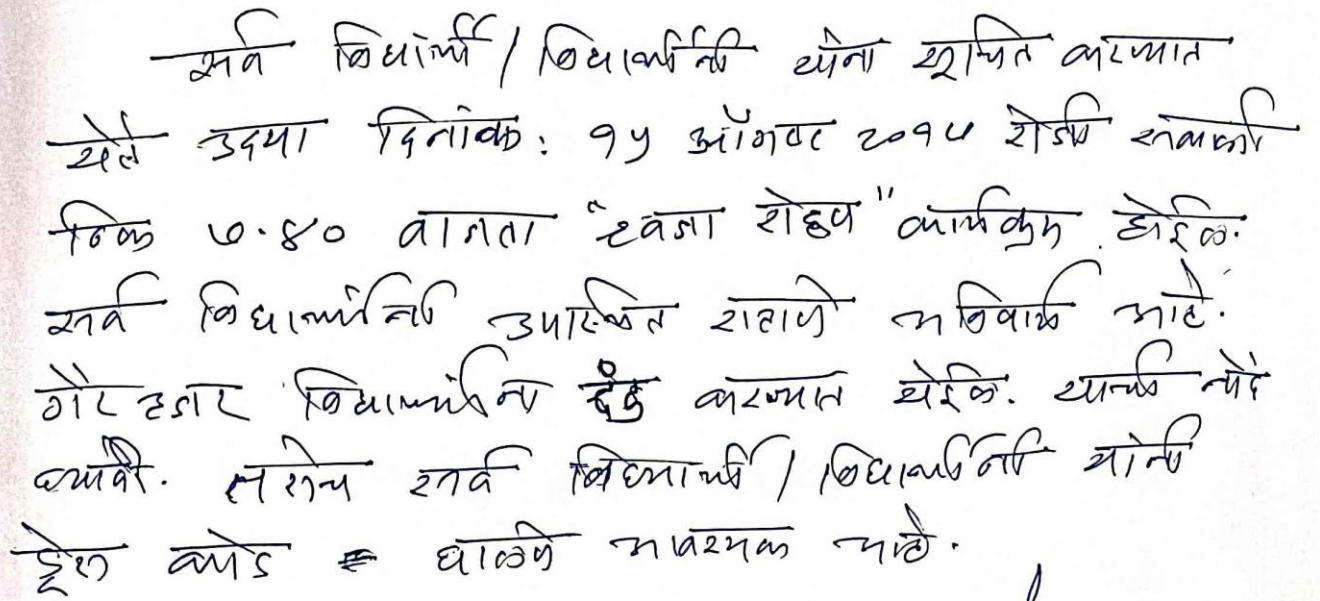 सर्व विद्यार्थी / विद्यार्थीनी यांना सूचित करण्यात
येते उदया दिनांक: १५ ऑगस्ट २०१५ रोजी सकाळी
ठिक ७.४० वाजता "ध्वजा रोहण" कार्यक्रम होईल.
सर्व विद्यार्थ्यांनी उपास्थित राहाणे अनिवार्य आहे.
गैर हजर विद्यार्थ्यांना दंड करण्यात येईल. याची नोंद
घ्यावी. तसेच सर्व विद्यार्थी / विद्यार्थीनी यांनी
ड्रेस कोड घालणे आवश्यक आहे.